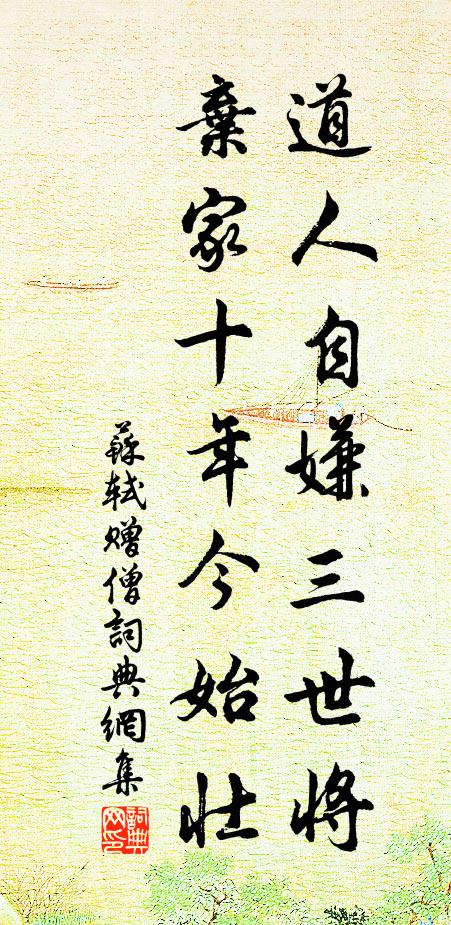 道人自嫌三世將
棄家十年今始壯
蘇軾贈僧詞典網集
詞典网印